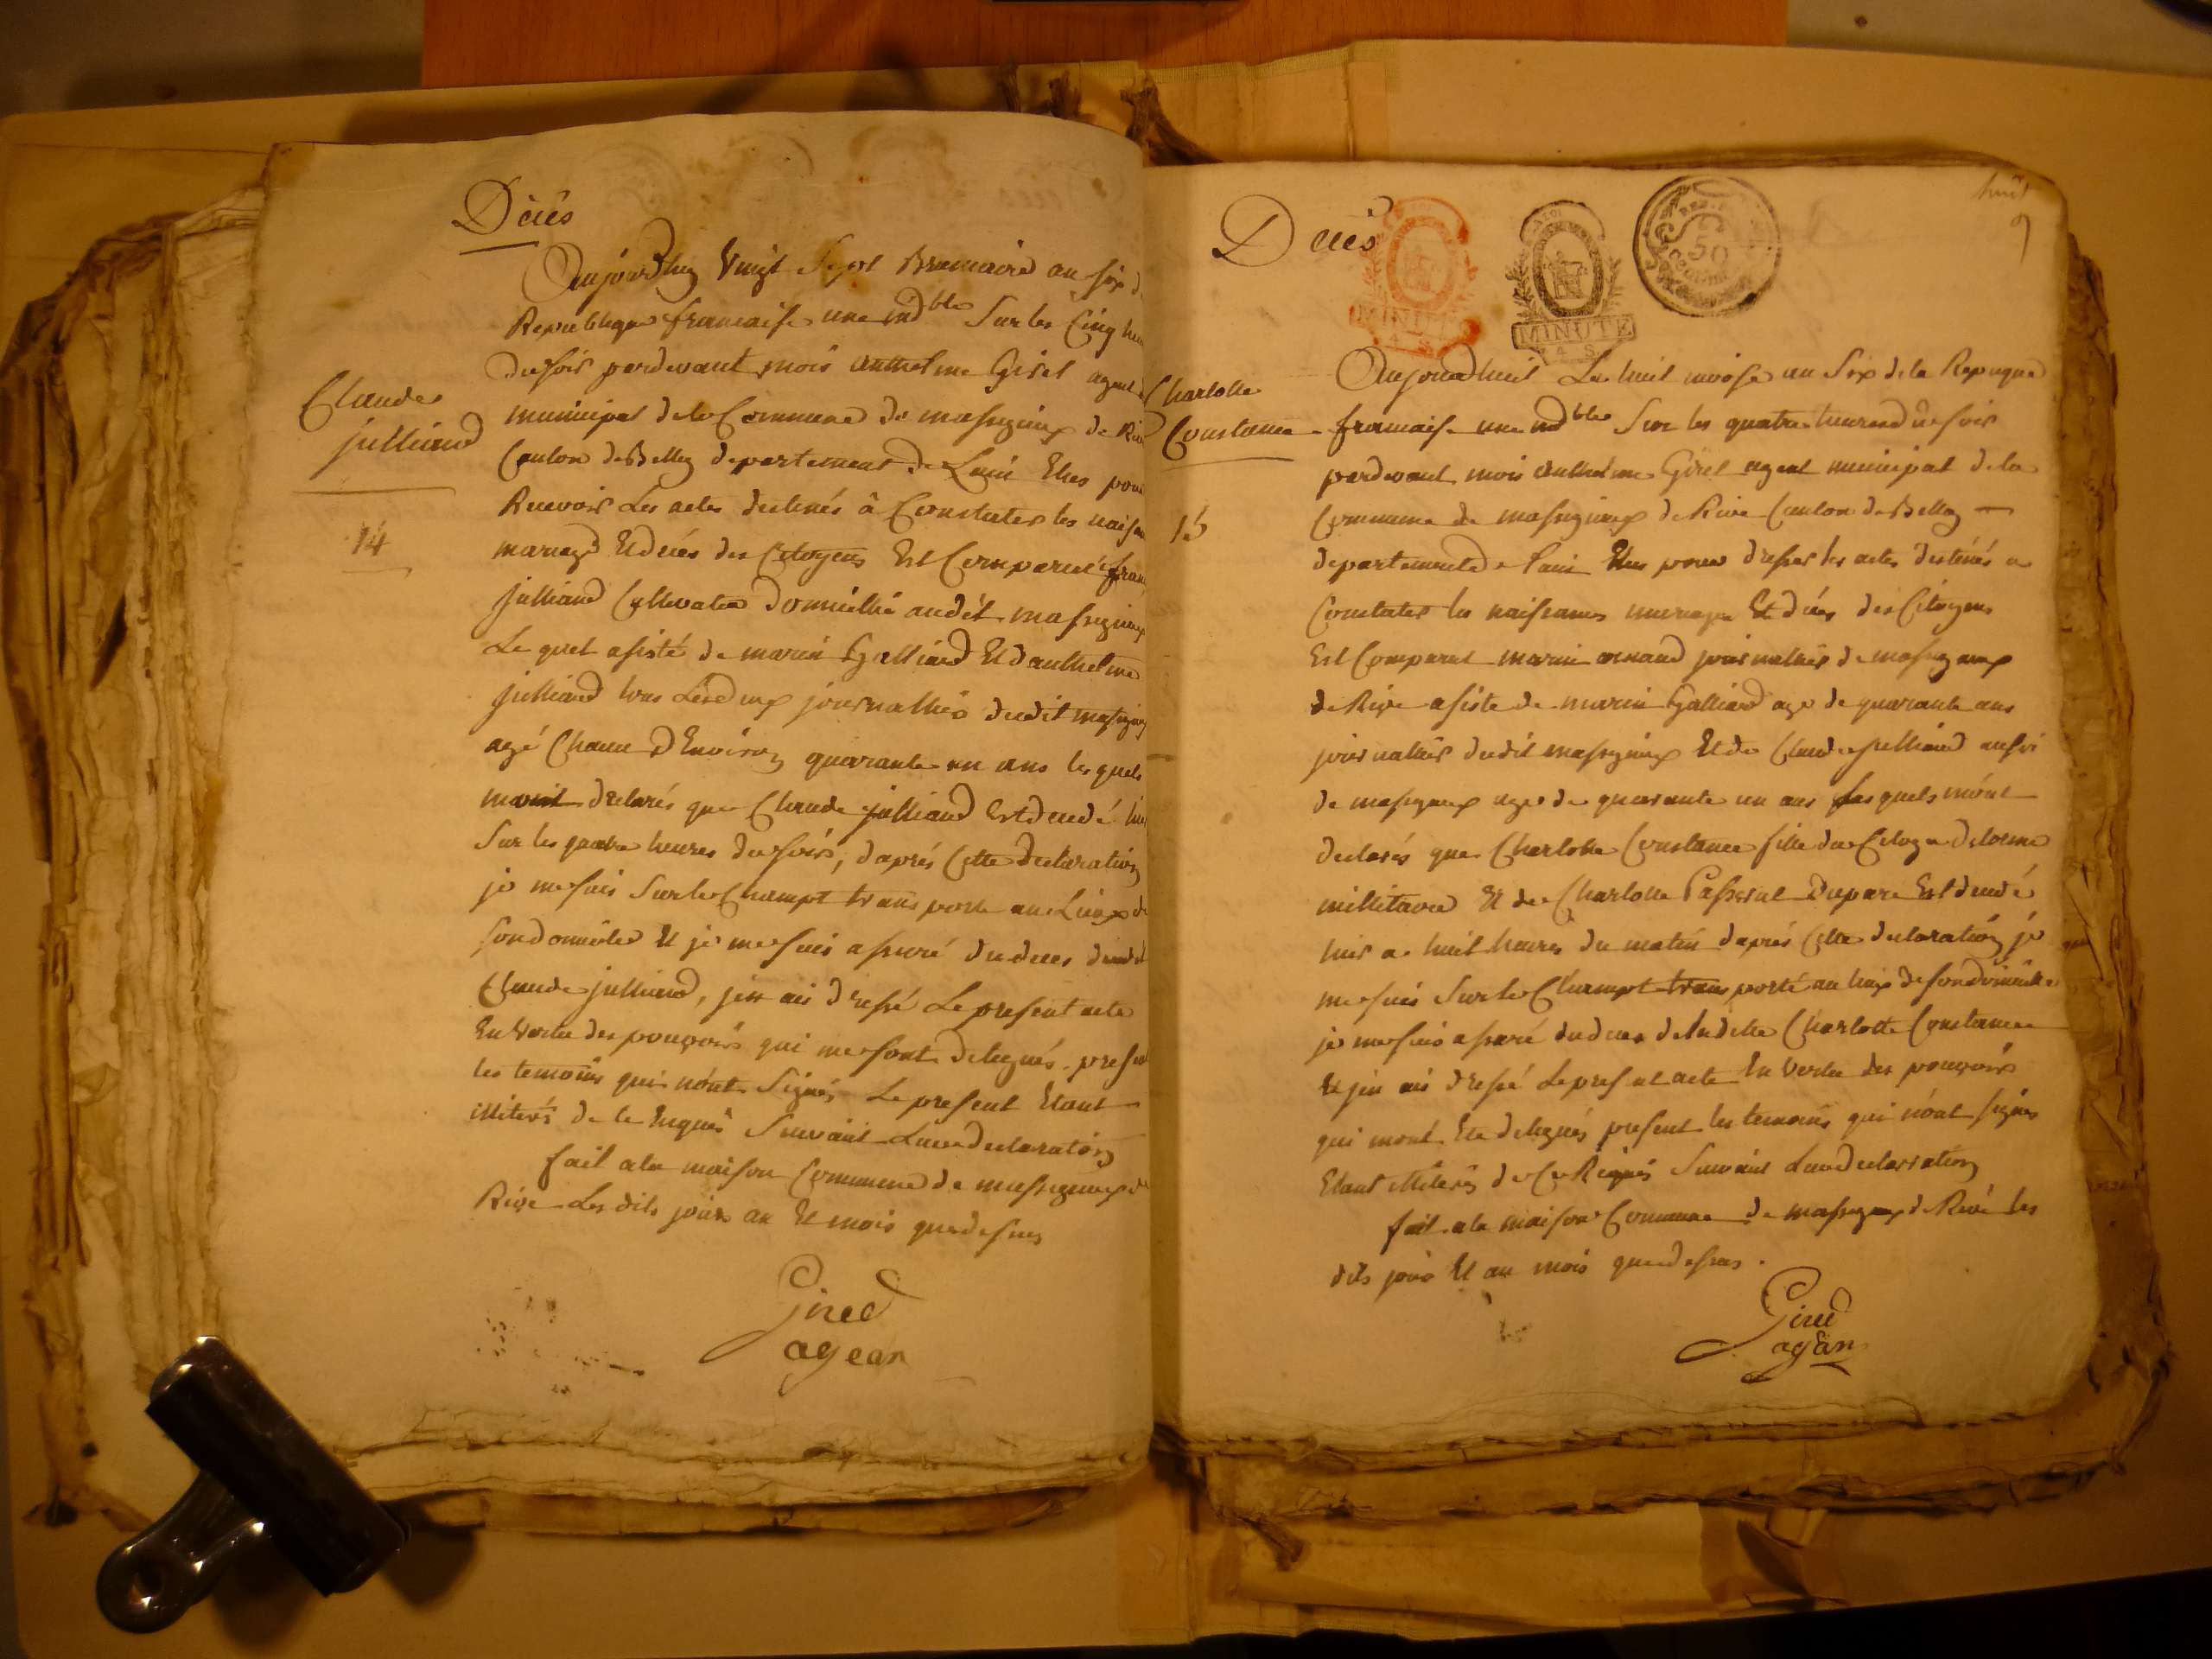 Décès
Aujourdhuy vingt Sept Brumaire an six d
Republique francaise une ind ble Sur les Cinq heu
du soir pardevant mois anthelme Girel agent
Claude
julliand
municipal dela Commune de massigniux de Riv
Canton de Belley departement de Lain Elus pour
Recevoir Les actes destinés à Constater les naisan
14
mariage Et décés des Citoyens Est Comparut fran
julliand Cultivateur domicillié audit massigniux
Le quel asisté de marin Galliard Et danthelme
julliand tous Les deux journallies dudit massigniux
agé Chacun D Environ quarante un ans les quels
mont declarés que Claude julliand Est decedé hier
Sur les quatre heures du soirs, daprés Cette declaration
je me suis Sur le Champt transporté au Lieux de
son domicile Et je me suis assuré du deces dudit
Claude julliand, jen ai dressé Le present acte
En vertu des pouvoirs qui me sont delegués. present
les temoins qui nónt Signés Le present Etant
illiterés de le Enquis Suivant Leur declaration
fait a la maison Commune de massigniux de
Rive Les dits jours an Et mois que dessus
Girel
agean
huit
9
Décés
MINUTE
4 S
MINUTE
4 S
50
Charlotte
Constance
Aujourdhuit Le huit nivose an Six de la Repuque
francaise une ind ble Sur les quatre heures du soir
pardevant mois anthelme Girel agent municipal de la
15
Commune de massigniux de Rive Canton de Belley
departement de Lain Elus pour dresser les actes destinés a
Constater les naissances mariage Et décés des Citoyens
Est Comparut marin arnaud journallier de massigniux
de Rive asisté de marin Galliard age de quarante ans
journallier dudit massigniux Et de Claude julliand aussi
de massigniux age de quarante un ans Les quels mónt
declarés que Charlotte Constance fille du Citoyen delorme
millitaire Et de Charlotte Passerat Est decedé
hier a huit heures du matin daprés Cette declaration je
me suis Sur le Champt transporté au lieux de son domicille
je me suis assuré du deces de ladite Charlotte Constance
Et jen ai dressé Le present acte En vertu des pouvoirs
qui mont Eté delegués present les temoins qui nónt signés
Etant illiterés de Ce Requis Suivant Leur declaration
fait a la maison Commune de massigniux de Rive les
dits jour Et an mois que dessus.
Girel
agean